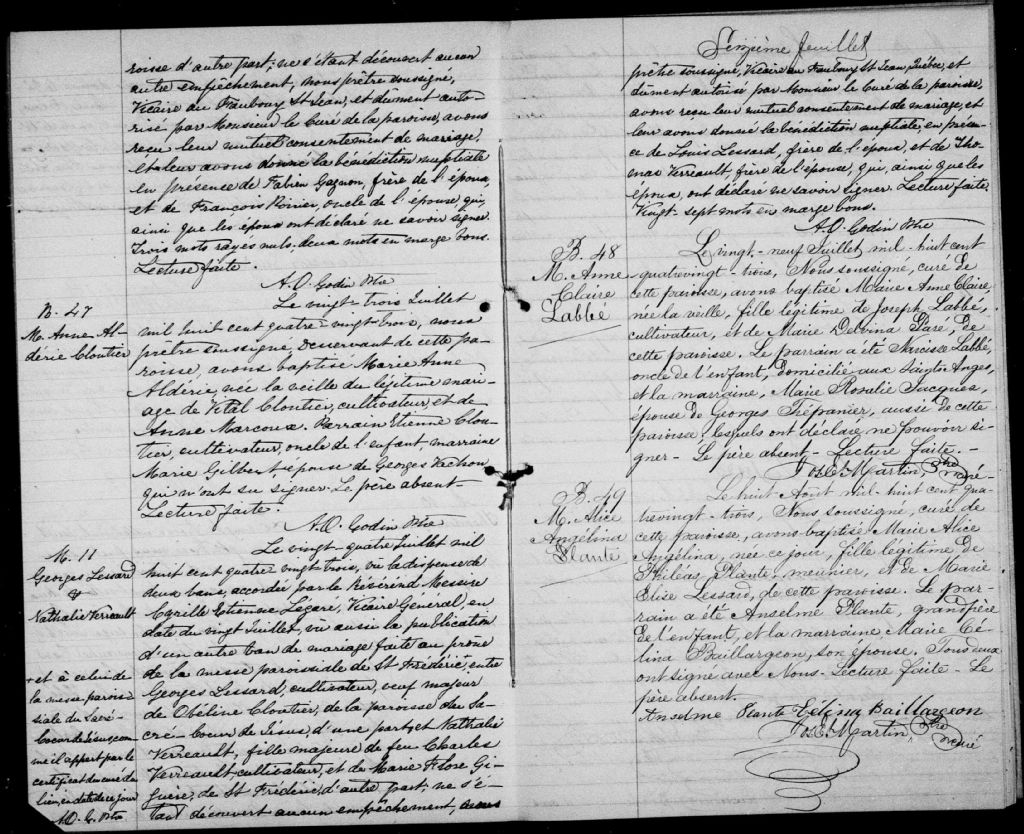 roisse d'autre part; ne s'étant découvert aucun
autre empêchement, nous prêtre soussigné,
Vicaire au Faubourg St Jean, et dûment auto-
risé par Monsieur le Curé de la paroisse, avons
reçu leur mutuel consentement de mariage,
et leur avons donné la bénédiction nuptiale
en présence de Fabien Gagnon, frère de l'époux,
et de François Poirier, oncle de l'épouse, qui,
ainsi que les époux ont déclaré ne savoir signer.
Trois mots rayés nuls, deux mots en marge bons.
Lecture faite.
A.O. Godin Ptre
B. 47
M. Anne Al-
dérie Cloutier
Le vingt-trois Juillet
mil huit cent quatre-vingt-trois, nous
prêtre soussigné Desservant de cette pa-
roisse, avons baptisé Marie Anne
Aldérie, née la veille du légitime mari-
age de Vital Cloutier, cultivateur, et de
Anne Marcoux. Parrain Etienne Clou-
tier, cultivateur, oncle de l'enfant, marraine
Marie Gilbert, épouse de Georges Vachon
qui n'ont su signer. Le père absent-
Lecture faite.
A.O. Godin Ptre
M. 11
Georges Lessard
&
Nathalie Verreault
Le vingt-quatre Juillet mil
huit cent quatre vingt trois, vu la dispense de
deux bans, accordée par le Révérend Messire
Cyrille Etienne Legaré, Vicaire Général, en
date du vingt Juillet, vu aussi la publication
d'un autre ban de mariage faite au prône
de la messe paroissiale de St Frédéric, entre
Georges Lessard, cultivateur, veuf majeur
de Obéline Cloutier, de la paroisse du Sa-
cré-Coeur de Jésus, d'une part, et Nathalie
Verreault, fille majeure de feu Charles
Verreault, cultivateur, et de Marie Flore Gi-
guère, de St Frédéric, d'autre part; ne s'é-
tant découvert aucun empêchement, nous
+ et à celui de
la messe parois-
siale du Sacré-
Coeur de Jésus, com-
me il appert par le
certificat du curé du
lieu, en date de ce jour
A.O. G. Ptre
Seizième feuillet
prêtre soussigné, Vicaire au Faubourg St Jean, Québec, et
dûment autorisé par Monsieur le Curé de la paroisse,
avons reçu leur mutuel consentement de mariage, et
leur avons donné la bénédiction nuptiale, en présen-
ce de Louis Lessard, frère de l'époux, et de Tho-
mas Verreault, frère de l'épouse, qui, ainsi que les
époux, ont déclaré ne savoir signer. Lecture faite.
Vingt-sept mots en marge bons.
A.O. Godin Ptre
B. 48
M. Anne
Claire
Labbé
Le vingt-neuf Juillet mil-huit cent
quatrevingt-trois, Nous soussigné, curé de
cette paroisse, avons baptisé Marie Anne Claire,
née la veille, fille légitime de Joseph Labbé,
cultivateur, et de Marie Delvina Paré, de
cette paroisse. Le parrain a été Narcisse Labbé,
oncle de l'enfant, domicilié aux Saints-Anges,
et la marraine, Marie Rosalie Jacques,
épouse de Georges Trépanier, aussi de cette
paroisse, lesquels ont déclaré ne pouvoir si-
gner- Le père absent- Lecture faite.-
Jos. E. Martin, Ptre
curé-
B. 49
M. Alice
Angélina
Plante
Le huit Août mil-huit cent qua-
trevingt-trois, Nous soussigné, curé de
cette paroisse, avons baptisé Marie Alice
Angélina, née ce jour, fille légitime de
Philéas Plante, meunier, et de Marie
Elise Lessard, de cette paroisse. Le par-
rain a été Anselme Plante, grandpère
de l'enfant, et la marraine Marie Cé-
lina Baillargeon, son épouse. Tous deux
ont signé avec Nous- Lecture faite- Le
père absent.
Anselme Plante Célina Baillargeon
Jos. E. Martin, Ptre
curé